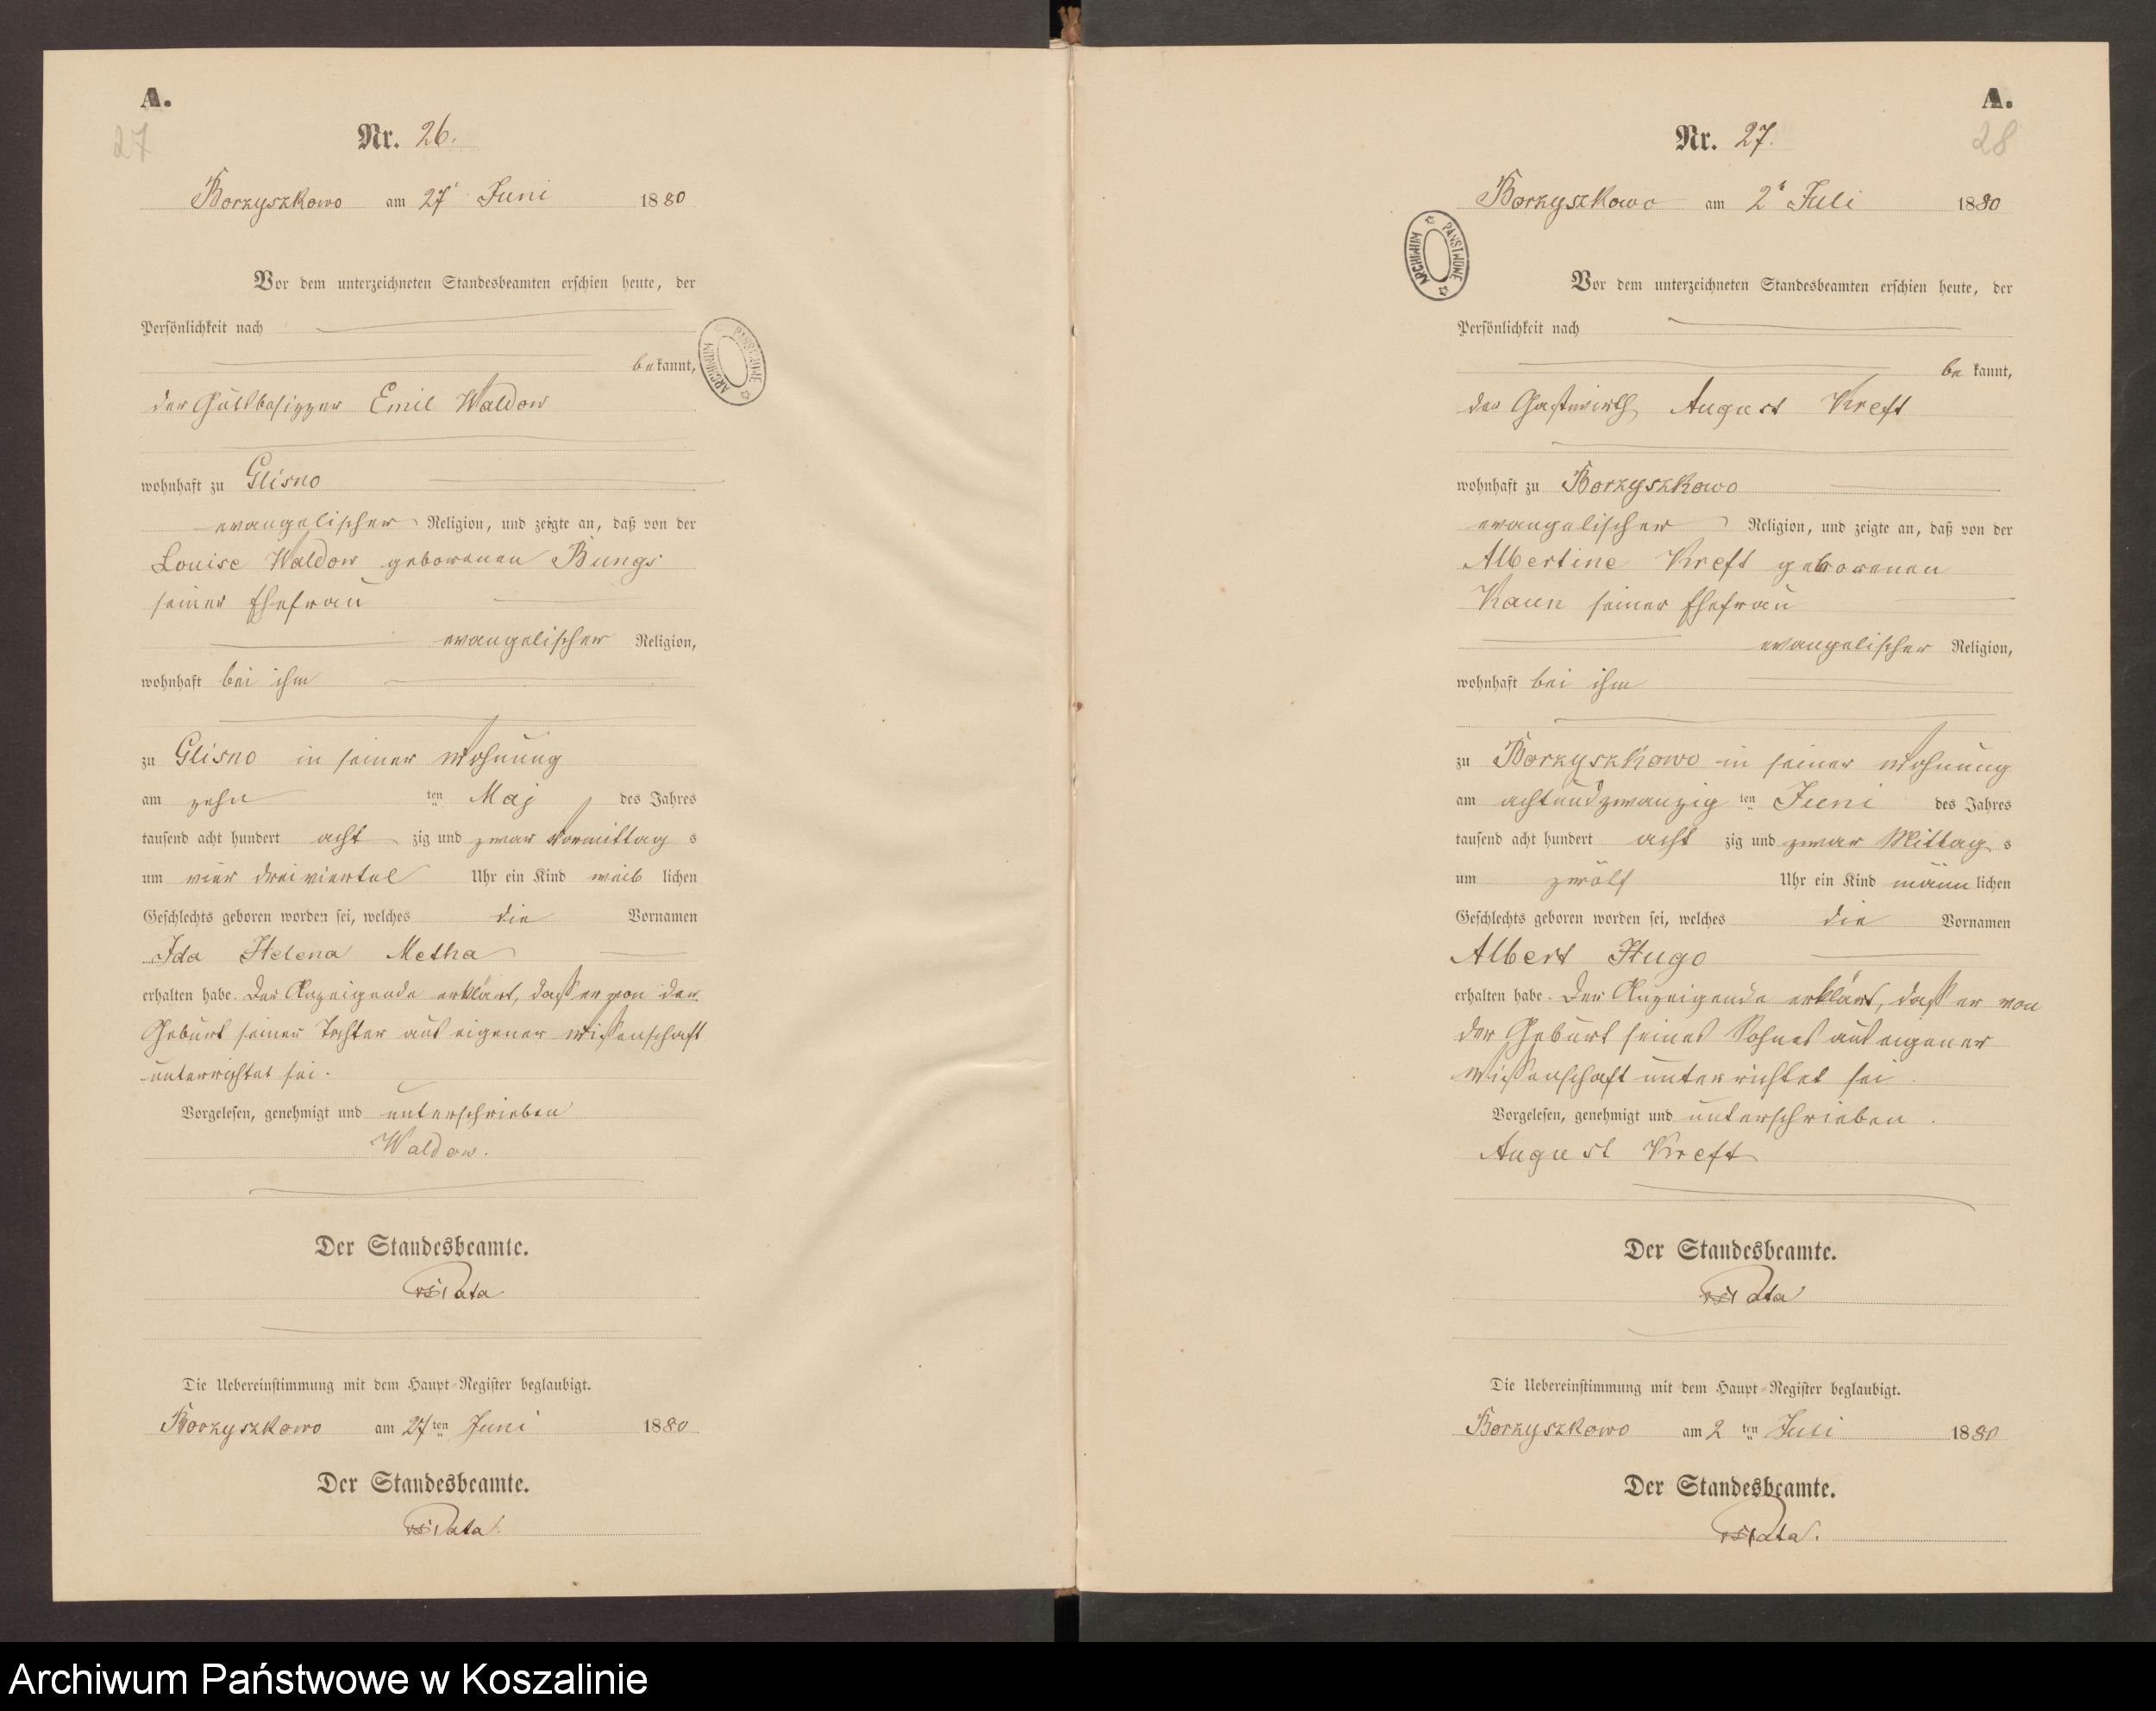 A.
27
Nr. 26.
Borzyszkowo am 27ᵗ Juni 1880
Vor dem unterzeichneten Standesbeamten erschien heute, der
Persönlichkeit nach
bekannt,
ARCHIWUM PAŃSTWOWE
der Gutsbesitzer Emil Waldow
wohnhaft zu Glisno
evangelischer Religion, und zeigte an, daß von der
Louise Waldow geborenen Bungs
seiner Ehefrau
evangelischer Religion,
wohnhaft bei ihm
zu Glisno in seiner Wohnung
am zehn ten Maj des Jahres
tausend acht hundert acht zig und zwar Vormittag s
um vier dreiviertel Uhr ein Kind weib lichen
Geschlechts geboren worden sei, welches die Vornamen
Ida Helena Metha
erhalten habe. Der Anzeigende erklärt, daß er von der
Geburt seiner Tochter aus eigener Wissenschaft
unterrichtet sei.
Vorgelesen, genehmigt und unterschrieben
Waldow.
Der Standesbeamte.
Die Uebereinstimmung mit dem Haupt-Register beglaubigt.
Borzyszkowo am 27 ten Juni 1880
Der Standesbeamte.
A.
28
Nr. 27.
Borzyszkowo am 2ᵗ Juli 1880
ARCHIWUM PAŃSTWOWE
Vor dem unterzeichneten Standesbeamten erschien heute, der
Persönlichkeit nach
be kannt,
der Gastwirth August Kreft
wohnhaft zu Borzyszkowo
evangelischer Religion, und zeigte an, daß von der
Albertine Kreft geborenen
Kaun seiner Ehefrau
evangelischer Religion,
wohnhaft bei ihm
zu Borzyszkowo in seiner Wohnung
am achtundzwanzig ten Juni des Jahres
tausend acht hundert acht zig und zwar Mittag s
um zwölf Uhr ein Kind männ lichen
Geschlechts geboren worden sei, welches die Vornamen
Albert Hugo
erhalten habe. Der Anzeigende erklärt, daß er von
der Geburt seines Sohnes aus eigener
Wissenschaft unterrichtet sei
Vorgelesen, genehmigt und unterschrieben.
August Kreft
Der Standesbeamte.
Die Uebereinstimmung mit dem Haupt-Register beglaubigt.
Borzyszkowo am 2 ten Juli 1880
Der Standesbeamte.
Archiwum Państwowe w Koszalinie